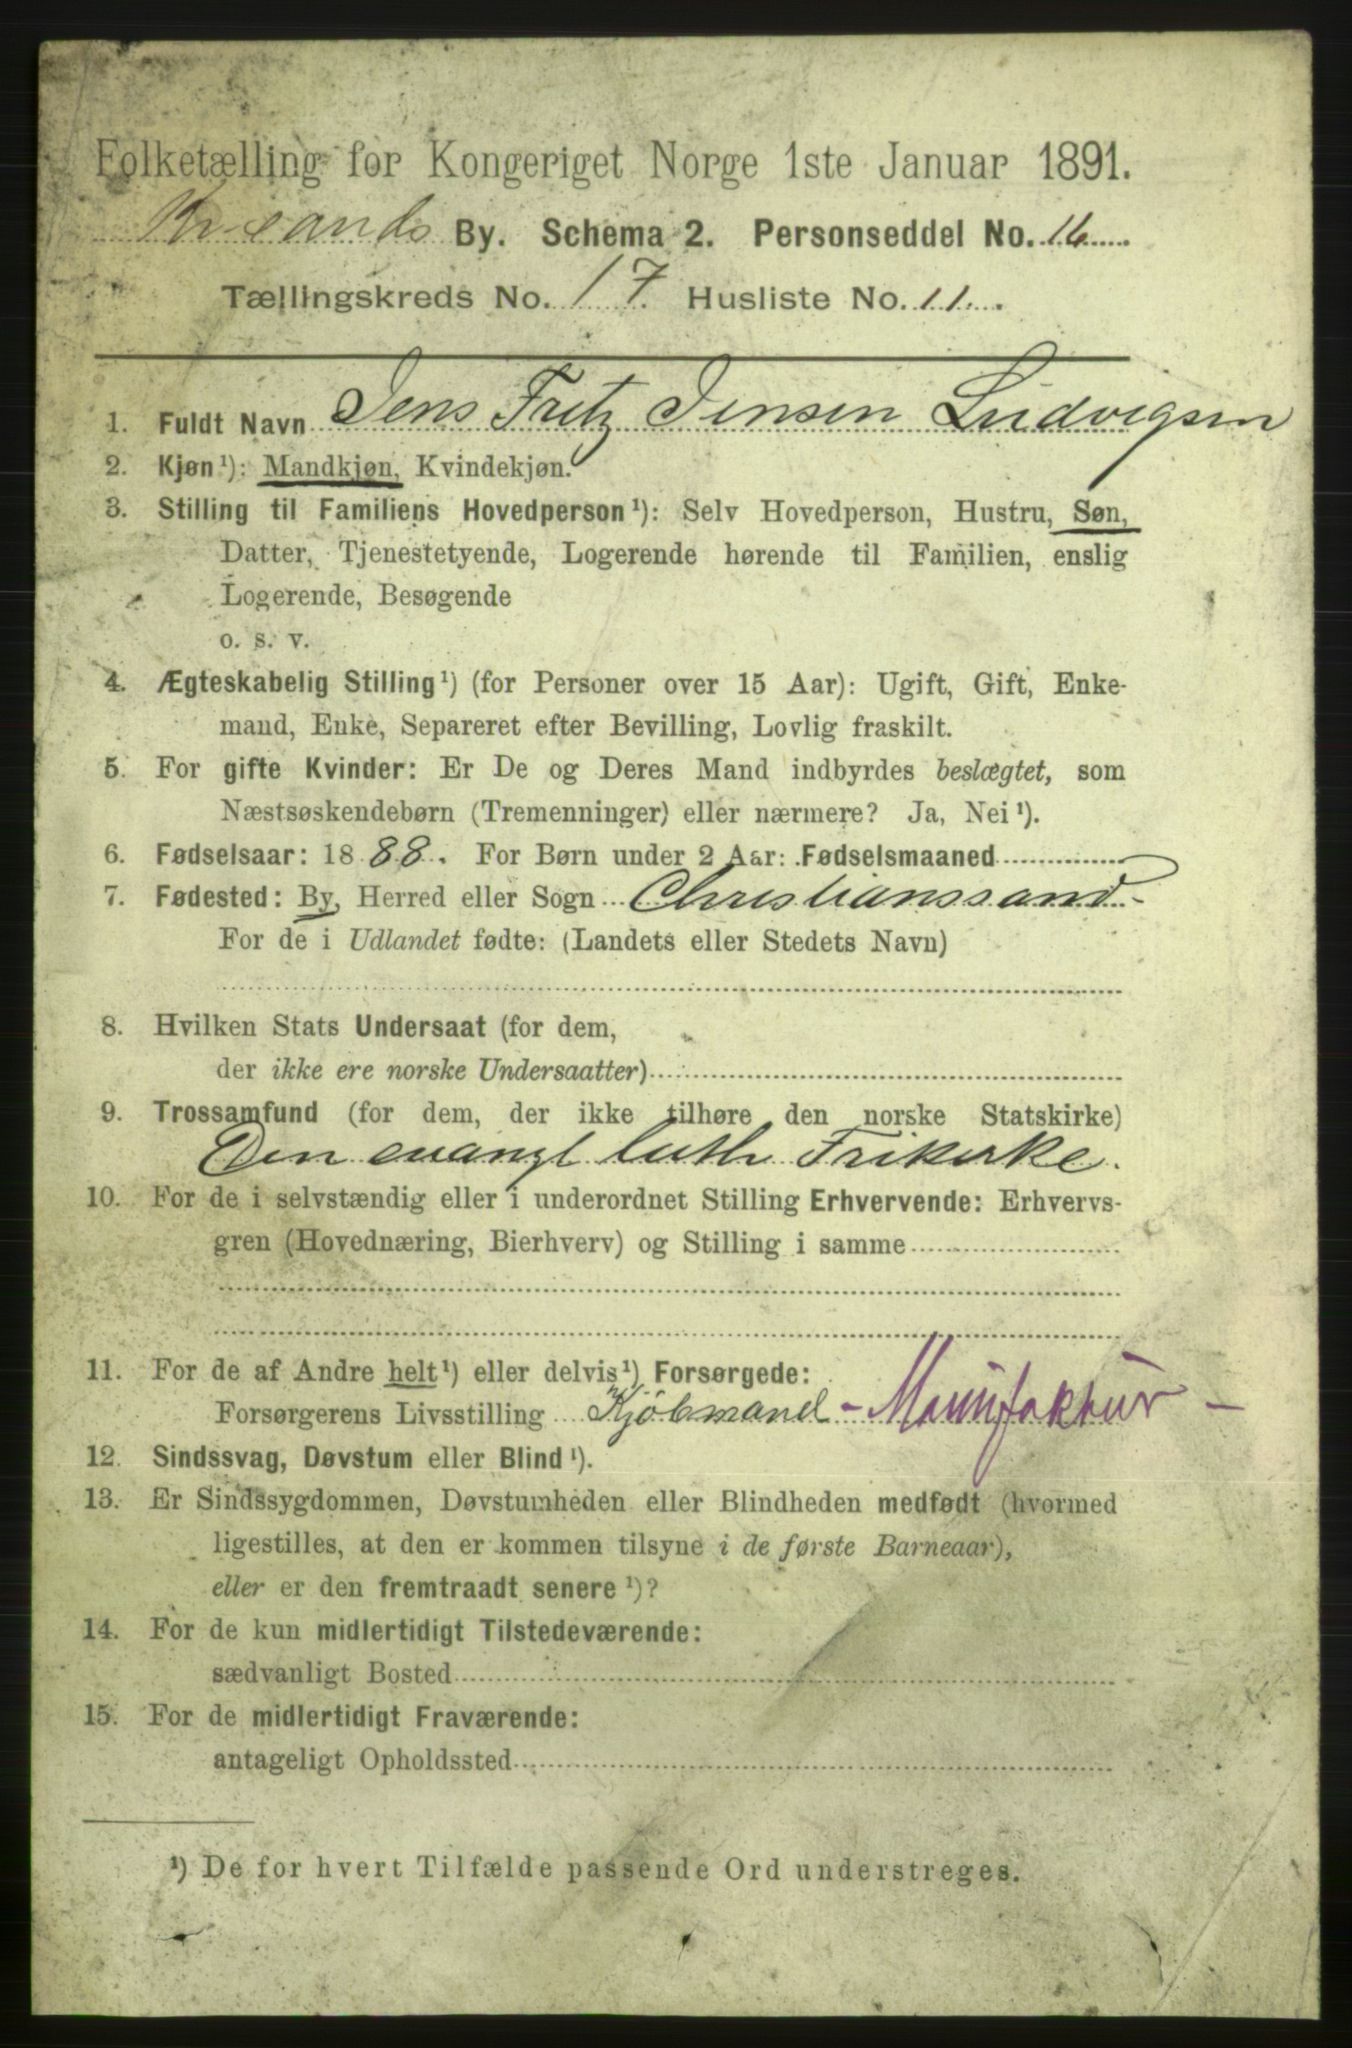 Folketælling for Kongeriget Norge 1ste Januar 1891.
Krsands By. Schema 2. Personseddel No. 16
Tællingskreds No. 17 Husliste No. 11
1. Fuldt Navn Jens Fritz Jensen Ludvigsen
2. Kjøn¹): Mandkjøn, Kvindekjøn.
3. Stilling til Familiens Hovedperson¹): Selv Hovedperson, Hustru, Søn,
Datter, Tjenestetyende, Logerende hørende til Familien, enslig
Logerende, Besøgende
o. s. v.
4. Ægteskabelig Stilling¹) (for Personer over 15 Aar): Ugift, Gift, Enke-
mand, Enke, Separeret efter Bevilling, Lovlig fraskilt.
5. For gifte Kvinder: Er De og Deres Mand indbyrdes beslægtet, som
Næstsøskendebørn (Tremenninger) eller nærmere? Ja, Nei¹).
6. Fødselsaar: 1888. For Børn under 2 Aar: Fødselsmaaned
7. Fødested: By, Herred eller Sogn Christianssand
For de i Udlandet fødte: (Landets eller Stedets Navn)
8. Hvilken Stats Undersaat (for dem,
der ikke ere norske Undersaatter)
9. Trossamfund (for dem, der ikke tilhøre den norske Statskirke)
Den evangl luth Frikirke.
10. For de i selvstændig eller i underordnet Stilling Erhvervende: Erhvervs-
gren (Hovednæring, Bierhverv) og Stilling i samme
11. For de af Andre helt¹) eller delvis¹) Forsørgede:
Forsørgerens Livsstilling Kjøbmand - Manufaktur -
12. Sindssvag, Døvstum eller Blind¹).
13. Er Sindssygdommen, Døvstumheden eller Blindheden medfødt (hvormed
ligestilles, at den er kommen tilsyne i de første Barneaar),
eller er den fremtraadt senere¹)?
14. For de kun midlertidigt Tilstedeværende:
sædvanligt Bosted
15. For de midlertidigt Fraværende:
antageligt Opholdssted
¹) De for hvert Tilfælde passende Ord understreges.